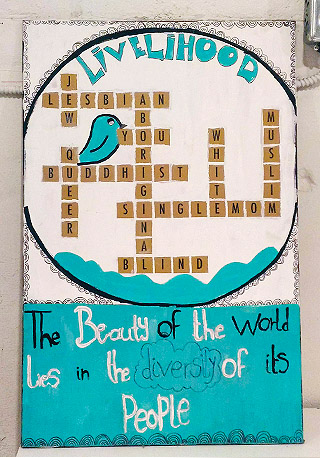 LIVELIHOOD
JEW
LESBIAN
ABORIGINAL
YOU
WHITE
MUSLIM
QUEER
BUDDHIST
SINGLEMOM
BLIND
The Beauty of the World
Lies in the diversity of its
People